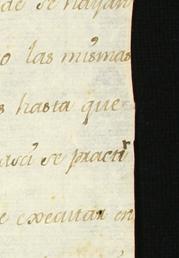 de se hayan
o las mismas
s hasta que
asi se practi
e executar en